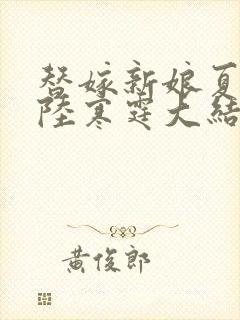 替嫁新娘夏
陸寒霆大結
黃俊郎